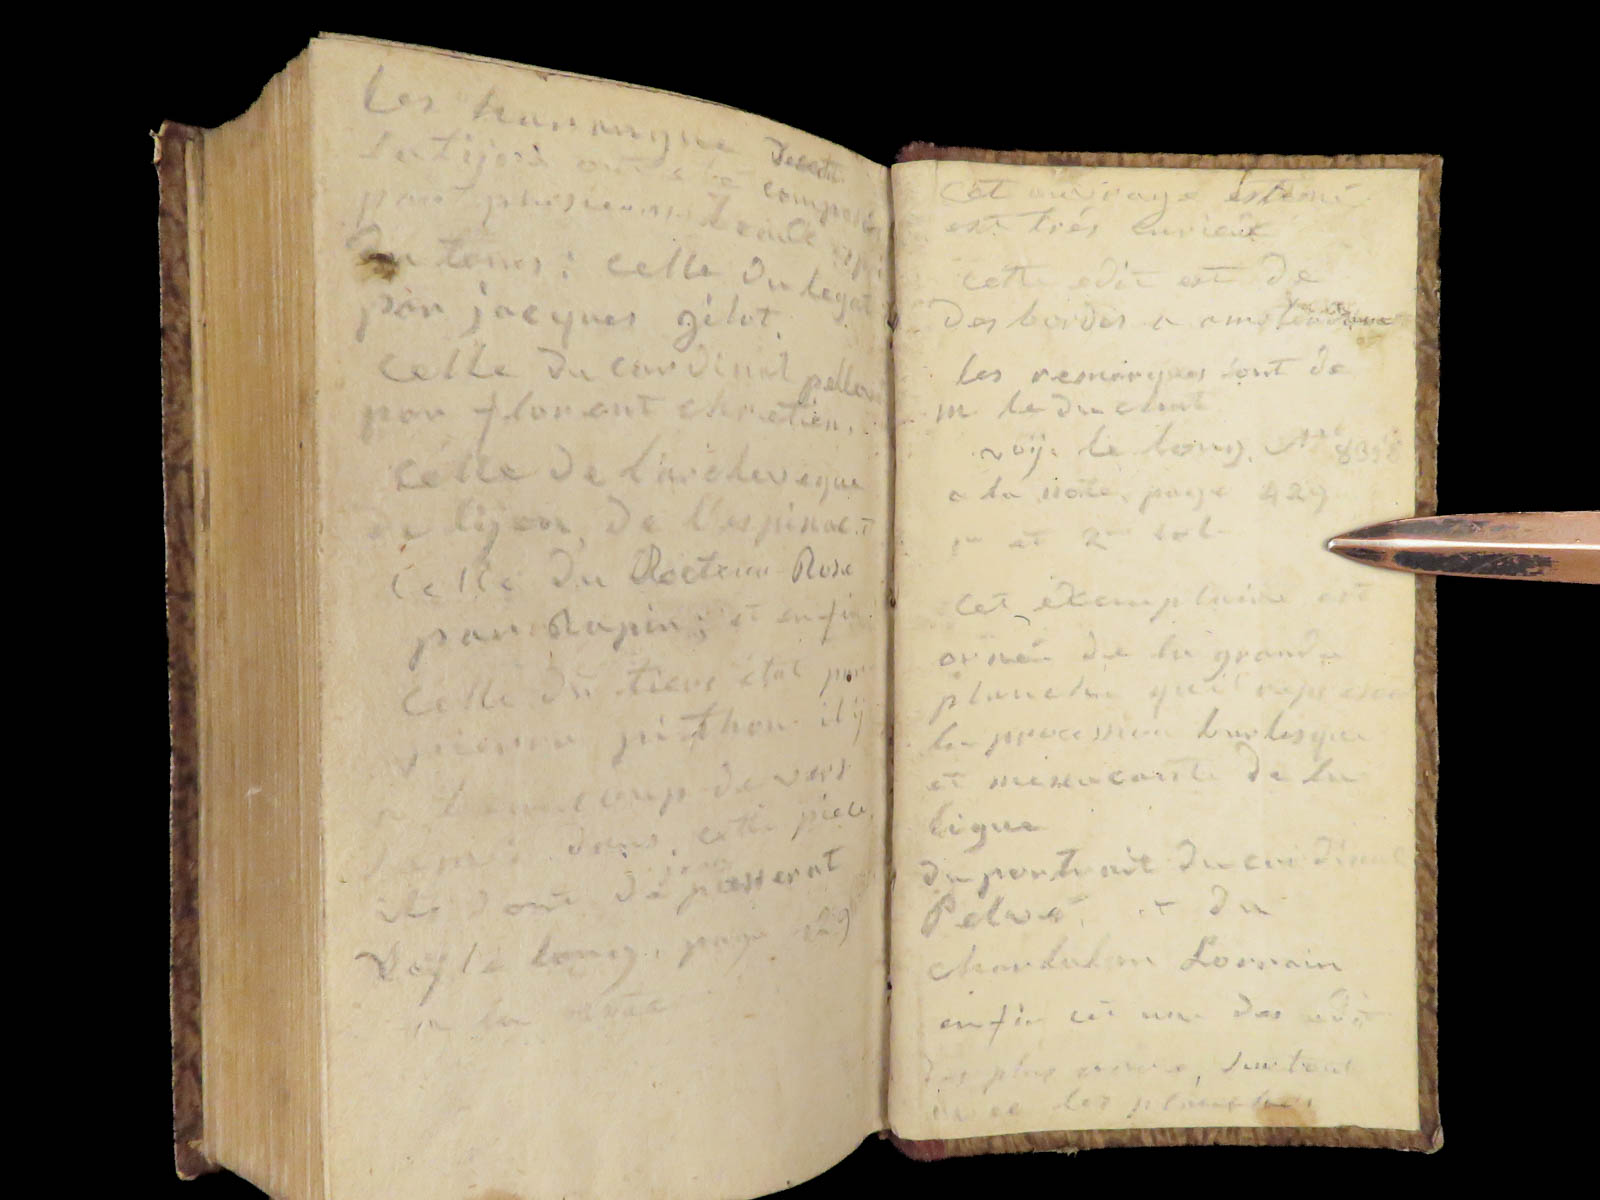 Les harrangue de cette
Satijre ont eté composé
par plusieurs
du tems: celle du legat
par jacques gilot.
celle du cardinal pellevé
par florent chretien.
celle de l'archeveque
de lijon, de l'espinac
celle du Recteur Rose
par Rapin; et enfin
celle du tiers état par
pierre pithou il ÿ
a beaucoup de vers
dans cette piece,
ils sont de passerat
Voÿ le long, page 429
a la note
cet ouvrage estimé
est trés curieux
cette edit est de
des bordes a amsterdam
les remarques sont de
m le duchat
voÿ. le long, N 8398
a la note, page 429
1re et 2me col
cet exemplaire est
ornée de la grande
planche qui represente
la procession burlesque
et de la
ligue
du portrait du cardinal
Pelvé, et du
charlatan Lorrain
enfin c'et une des edit
des plus surtout
avec les planches